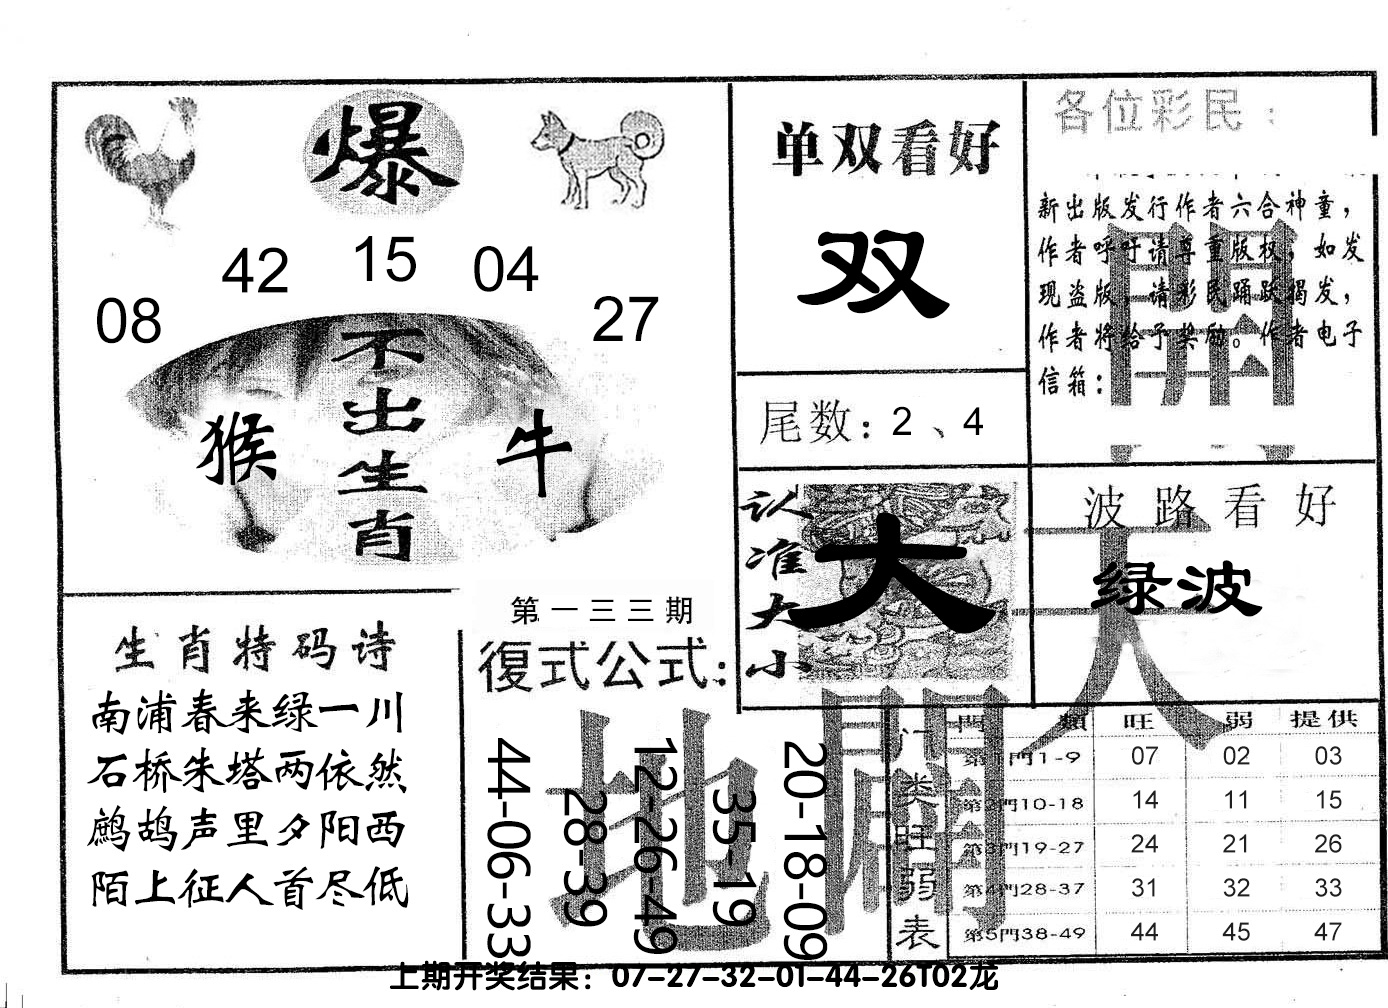 爆
42 15 04
08 27
不出生肖
猴
牛
单双看好
双
尾数：2、4
认准大小
大
各位彩民：
新出版发行作者六合神童，
作者呼吁请尊重版权，如发
现盗版，请彩民踊跃揭发，
作者将给予奖励。作者电子
信箱：
波路看好
绿波
生肖特码诗
南浦春来绿一川
石桥朱塔两依然
鹧鸪声里夕阳西
陌上征人首尽低
第一三三期
復式公式：
44-06-33
28-39
12-26-49
35-19
20-18-09
天
地
門类旺弱表
門類 旺 弱 提供
第1門1-9 07 02 03
第2門10-18 14 11 15
第3門19-27 24 21 26
第4門28-37 31 32 33
第5門38-49 44 45 47
上期开奖结果：07-27-32-01-44-26T02龙